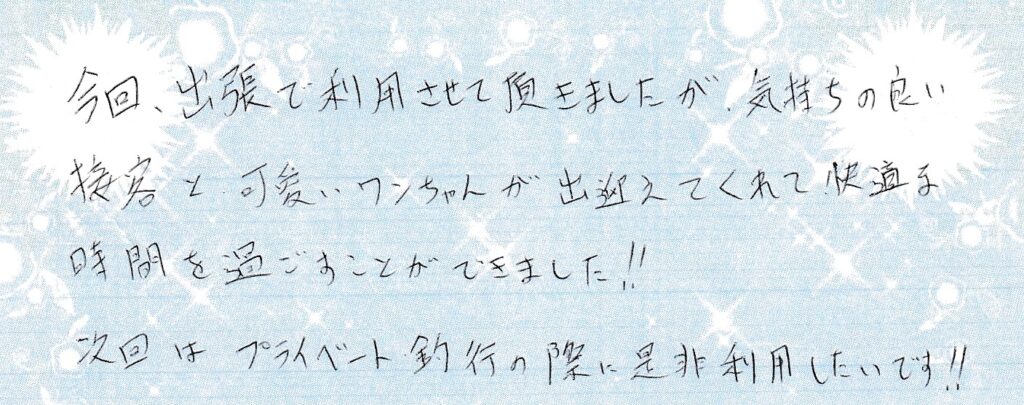 今回、出張で利用させて頂きましたが、気持ちの良い
接客と可愛いワンちゃんが出迎えてくれて快適な
時間を過ごすことができました!!
次回はプライベート釣行の際に是非利用したいです!!